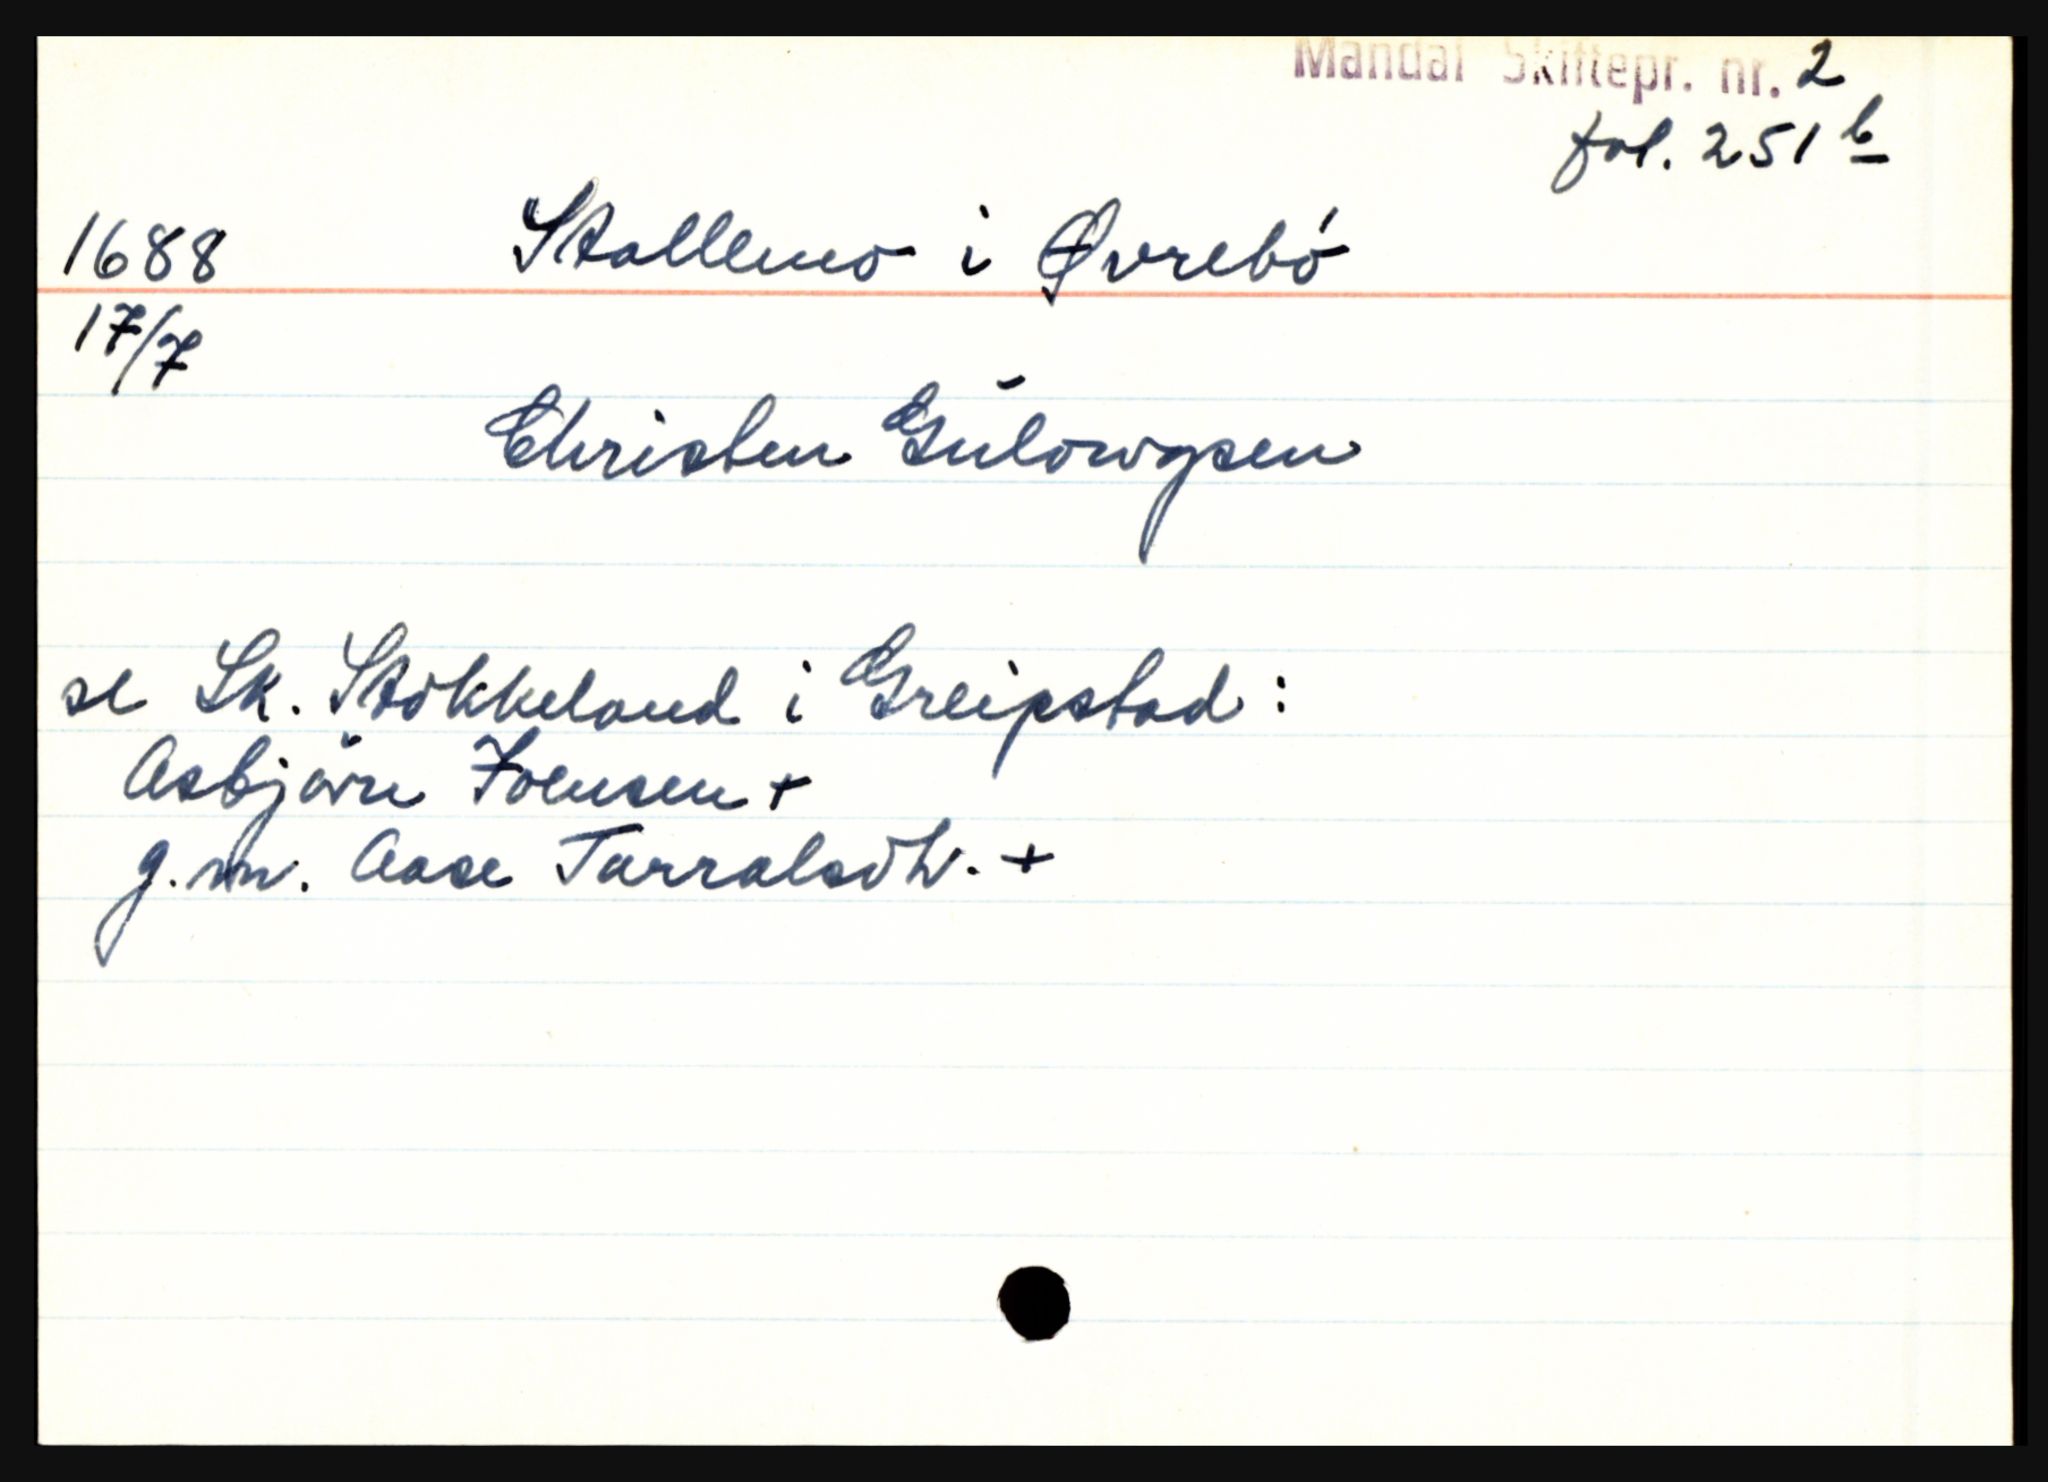 Mandal Skiftepr. nr. 2
fol. 251 b
1688 Stallemo i Øvrebó
17/7
Christen Gŭlowgsen
se Sk. Stókkeland i Greipstad:
Asbjörn Joensen +
g.m. Aase Tarralsdtr. +